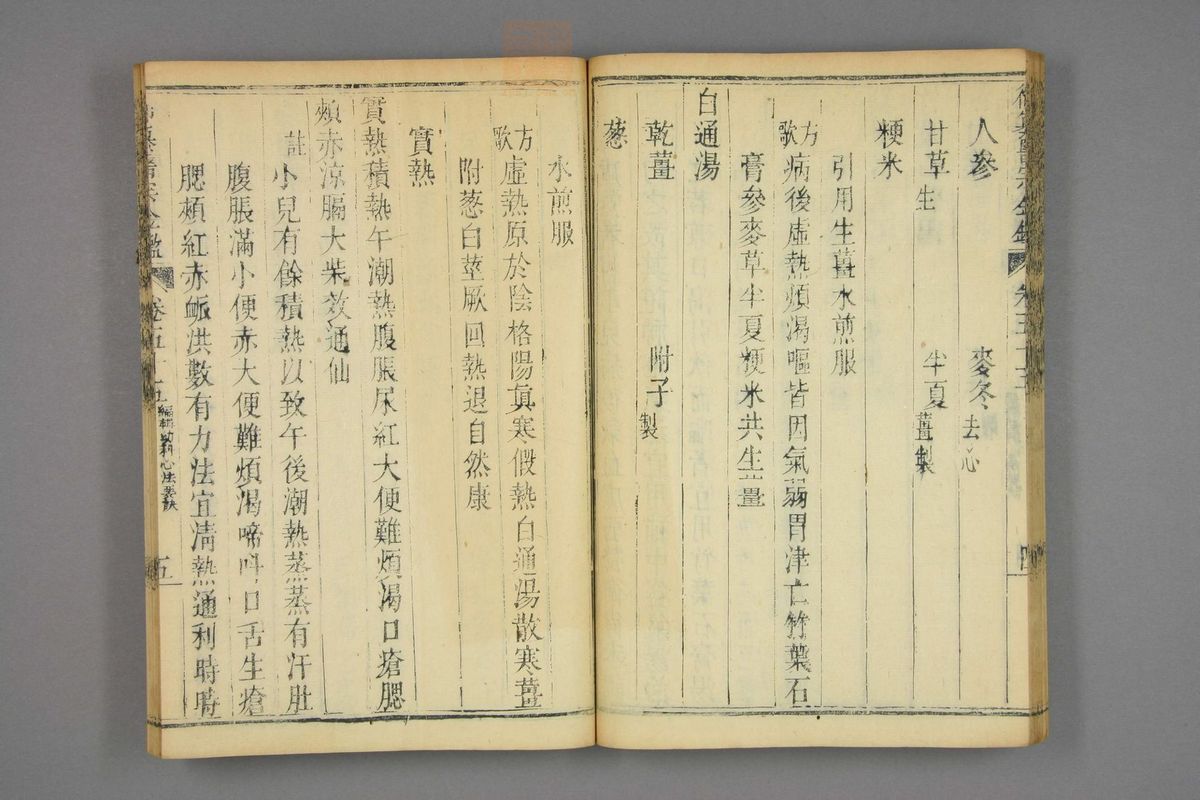 人參 麥冬去心
甘草生 半夏薑製
粳米
引用生薑水煎服
方歌 病後虛熱煩渴嘔皆因氣弱胃津亡竹葉石
膏參麥草半夏粳米共生薑
白通湯
乾薑 附子製
葱
水煎服
方歌 虛熱原於陰格陽眞寒假熱白通湯散寒薑
附葱白莖厥回熱退自然康
實熱
實熱積熱午潮熱腹脹尿紅大便難煩渴口瘡腮
頰赤涼膈大柴效通仙
註 小兒有餘積熱以致午後潮熱蒸蒸有汗肚
腹脹滿小便赤大便難煩渴啼叫口舌生瘡
腮頰紅赤脈洪數有力法宜淸熱通利時時
卷五十五 編輯幼科心法要訣 五